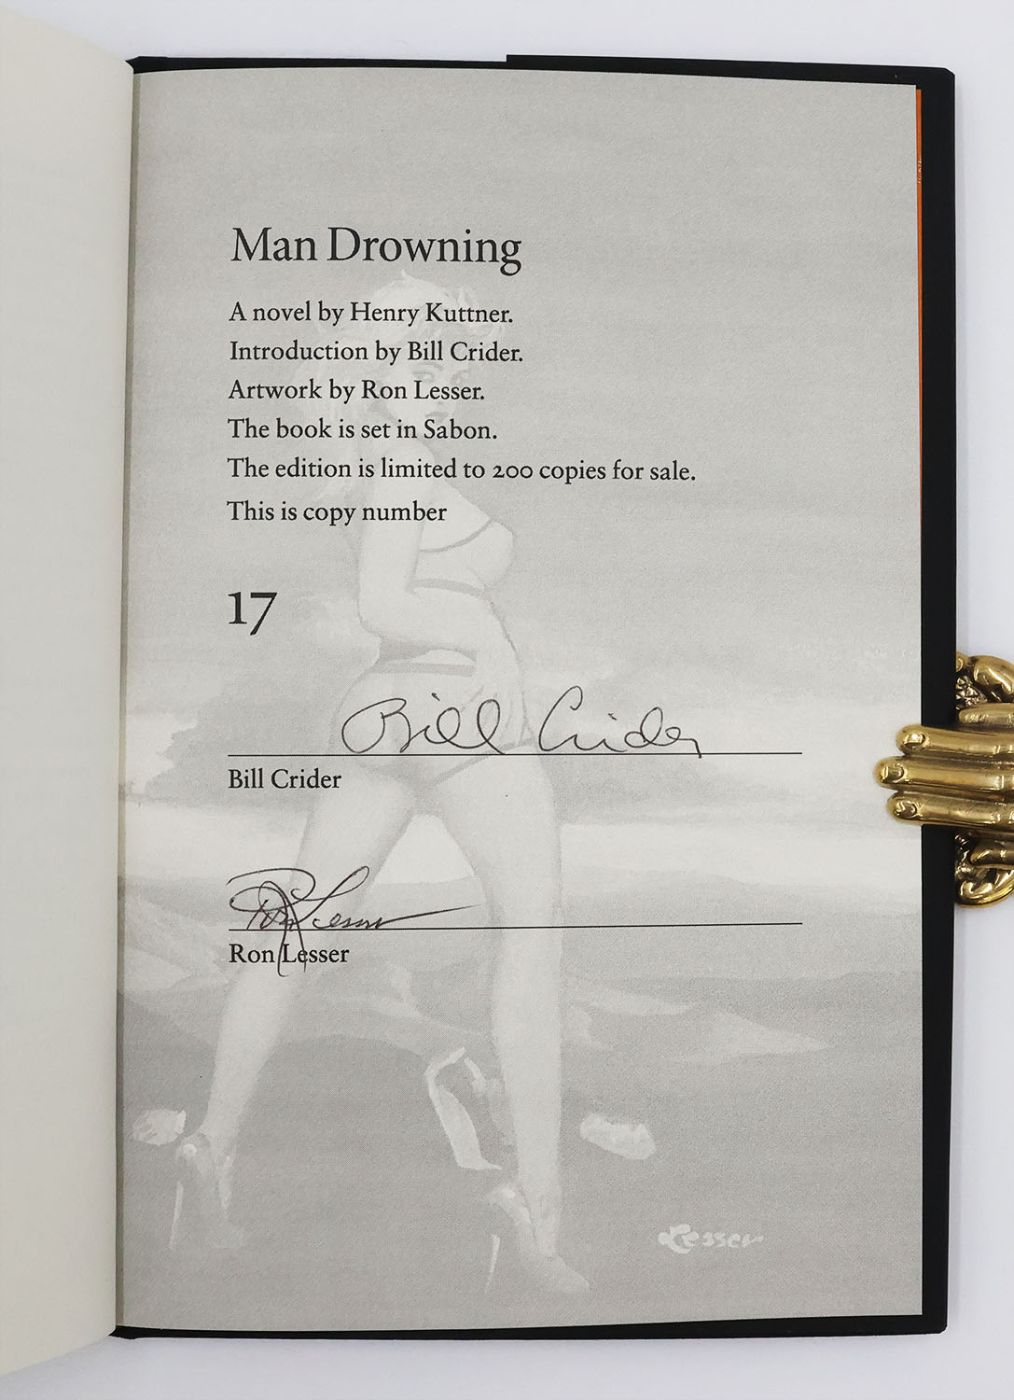 Man Drowning
A novel by Henry Kuttner.
Introduction by Bill Crider.
Artwork by Ron Lesser.
The book is set in Sabon.
The edition is limited to 200 copies for sale.
This is copy number
17
Bill Crider
Bill Crider
Ron Lesser
Ron Lesser
Lesser